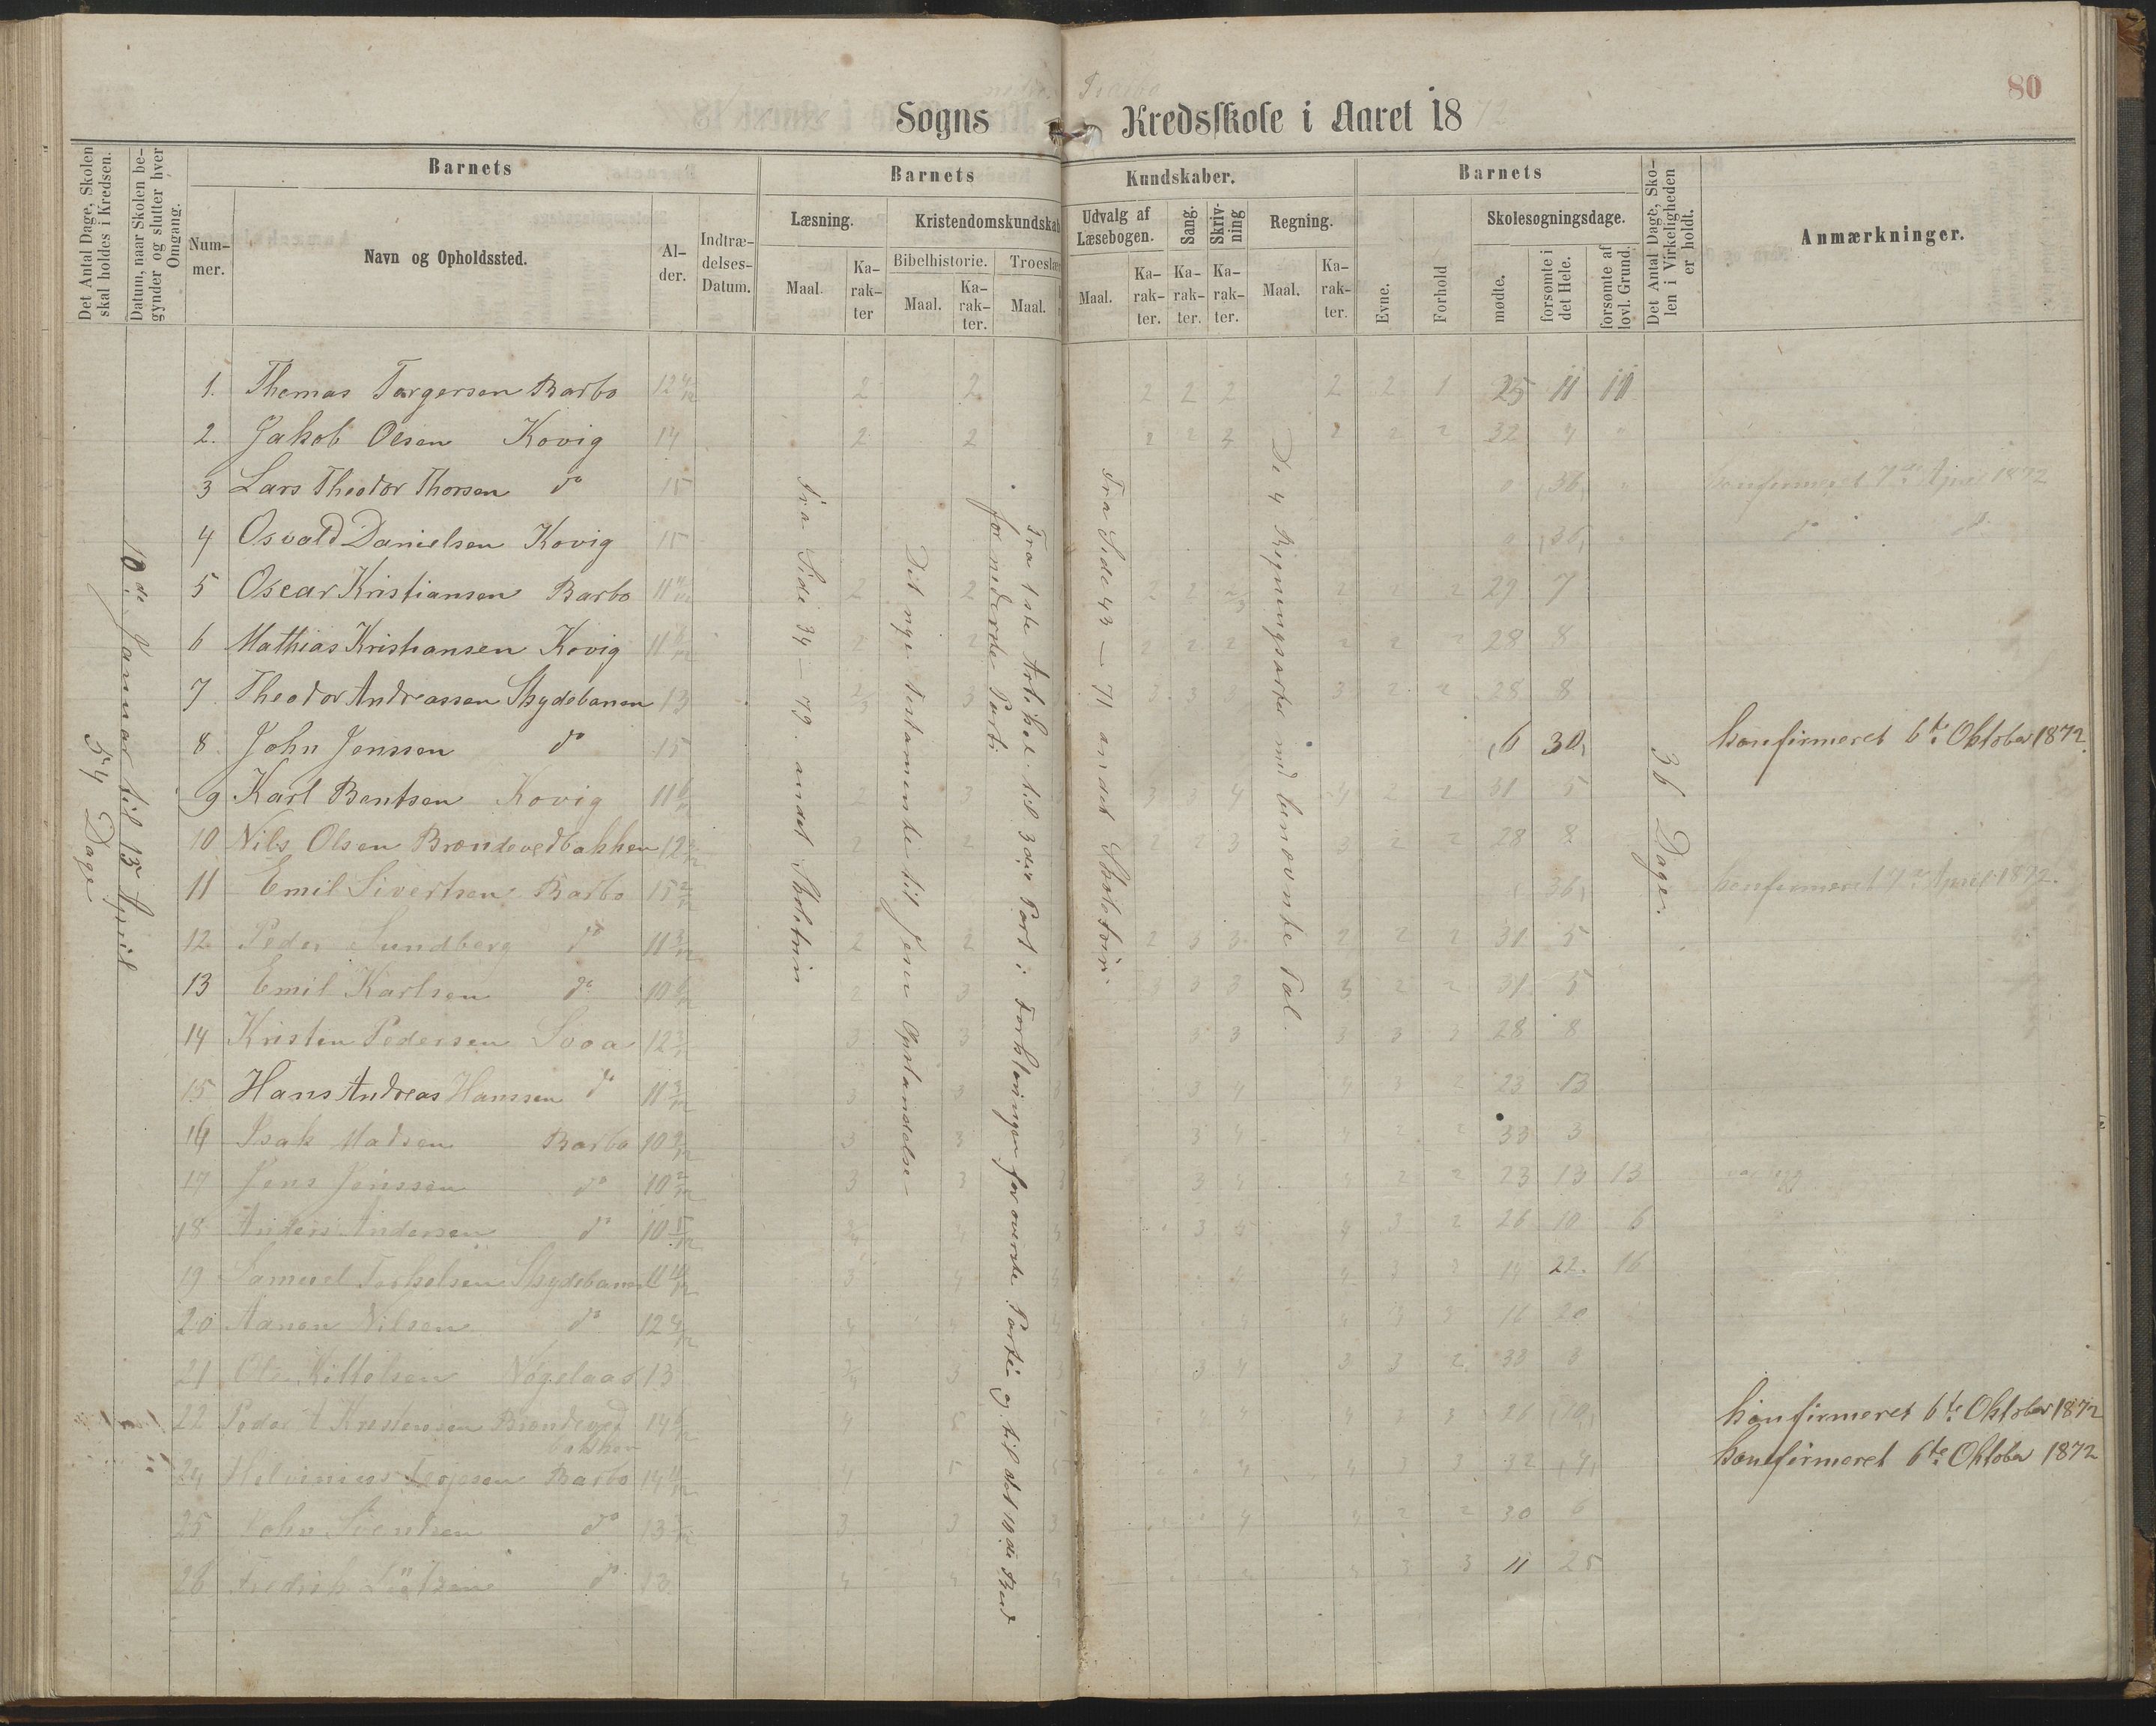 80
Barbo
Sogns Kredsskole i Aaret 1872
Det Antal Dage, Skolen skal holdes i Kredsen.
Datum, naar Skolen begynder og slutter hver Omgang.
Barnets
Num-mer.
Navn og Opholdssted.
Al-der.
Indtræ-delses-Datum.
Barnets Kundskaber.
Læsning.
Maal.
Ka-rak-ter
Kristendomskundskab
Bibelhistorie.
Maal.
Ka-rak-ter.
Troeslær
Maal.
Udvalg af Læsebogen.
Maal.
Ka-rak-ter.
Sang.
Ka-rak-ter.
Skriv-ning
Ka-rak-ter.
Regning.
Maal.
Ka-rak-ter.
Barnets
Evne.
Forhold
Skolesøgningsdage.
mødte.
forsømte i det Hele.
forsømte af lovl. Grund.
Det Antal Dage, Sko-len i Virkeligheden er holdt.
Anmærkninger.
54 Dage
10de Januar til 13 April
Fra Side 34 – 79 andet Skoletrin
Det nye Testamente til Jesu Opstandelse
Fra 1ste Artikel til 3die Part i Forklaringen for øverste Parti og til det 10de Bud
for nederste Parti
Fra Side 43 – 71 andet Skoletrin
De 4 Regningsarter med benævnte Tal.
36 Dage.
1. Thomas Torgersen Barbo 12 2 2 2 2 2 2 2 1 25 11 11
2. Jakob Olsen Kovig 14 2 2 2 2 3 2 2 2 32 4
3 Lars Theodor Thorsen do 15 0 36 konfirmeret 7de April 1872
4 Osvald Danielsen Kovig 15 0 36 do do
5 Oscar Kristiansen Barbo 11 2 2 2 2 2/3 2 2 2 29 7
6 Mathias Kristiansen Kovig 11 2 2 2 2 2 2 2 2 28 8
7 Theodor Andreassen Skydebanen 13 2/3 3 3 3 3 2 2 28 8
8 John Jenssen do 15 6 30 konfirmeret 6te Oktober 1872
9 Karl Bentsen Kovig 11 2 3 3 3 4 4 2 2 31 5
10 Nils Olsen Brændevedbakken 12 2 2 2 2 3 3 2 2 28 8
11 Emil Sivertsen Barbo 15 36 konfirmeret 7de April 1872.
12 Peder Sundberg do 11 2 2 2 3 3 2 2 2 31 5
13 Emil Karlsen do 10 2 3 3 3 3 3 2 2 31 5
14 Kristen Pedersen Sooa 12 3 3 3 3 3 3 3 28 8
15 Hans Andreas Hanssen do 11 3 3 3 4 4 3 2 23 13
16 Isak Madsen Barbo 10 3 3 3 4 4 2 2 33 3
17 Jens Jenssen do 10 3 3 3 4 4 2 2 23 13 13
18 Anders Andersen do 10 3/4 4 3 4 4 3 2 26 10 6
19 Samuel Torkelsen Skydebanen 11 3 4 4 4 3 3 14 22 16
20 Aanon Nilsen do 12 4 4 4 4 16 20
21 Ole Kittelsen 13 3/4 3 3 4 3 3 2 33 3
22 Peder A Kristensen Brændeved bakken 14 4 5 4 4 3 3 26 10 konfirmeret 6te Oktober 1872
24 Barbo 14 4 5 4 4 3 3 32 4 konfirmeret 6te Oktober 1872
25 John do 13 3 3 4 4 2 2 30 6
26 Fredrik do 13 4 4 3 3 11 25